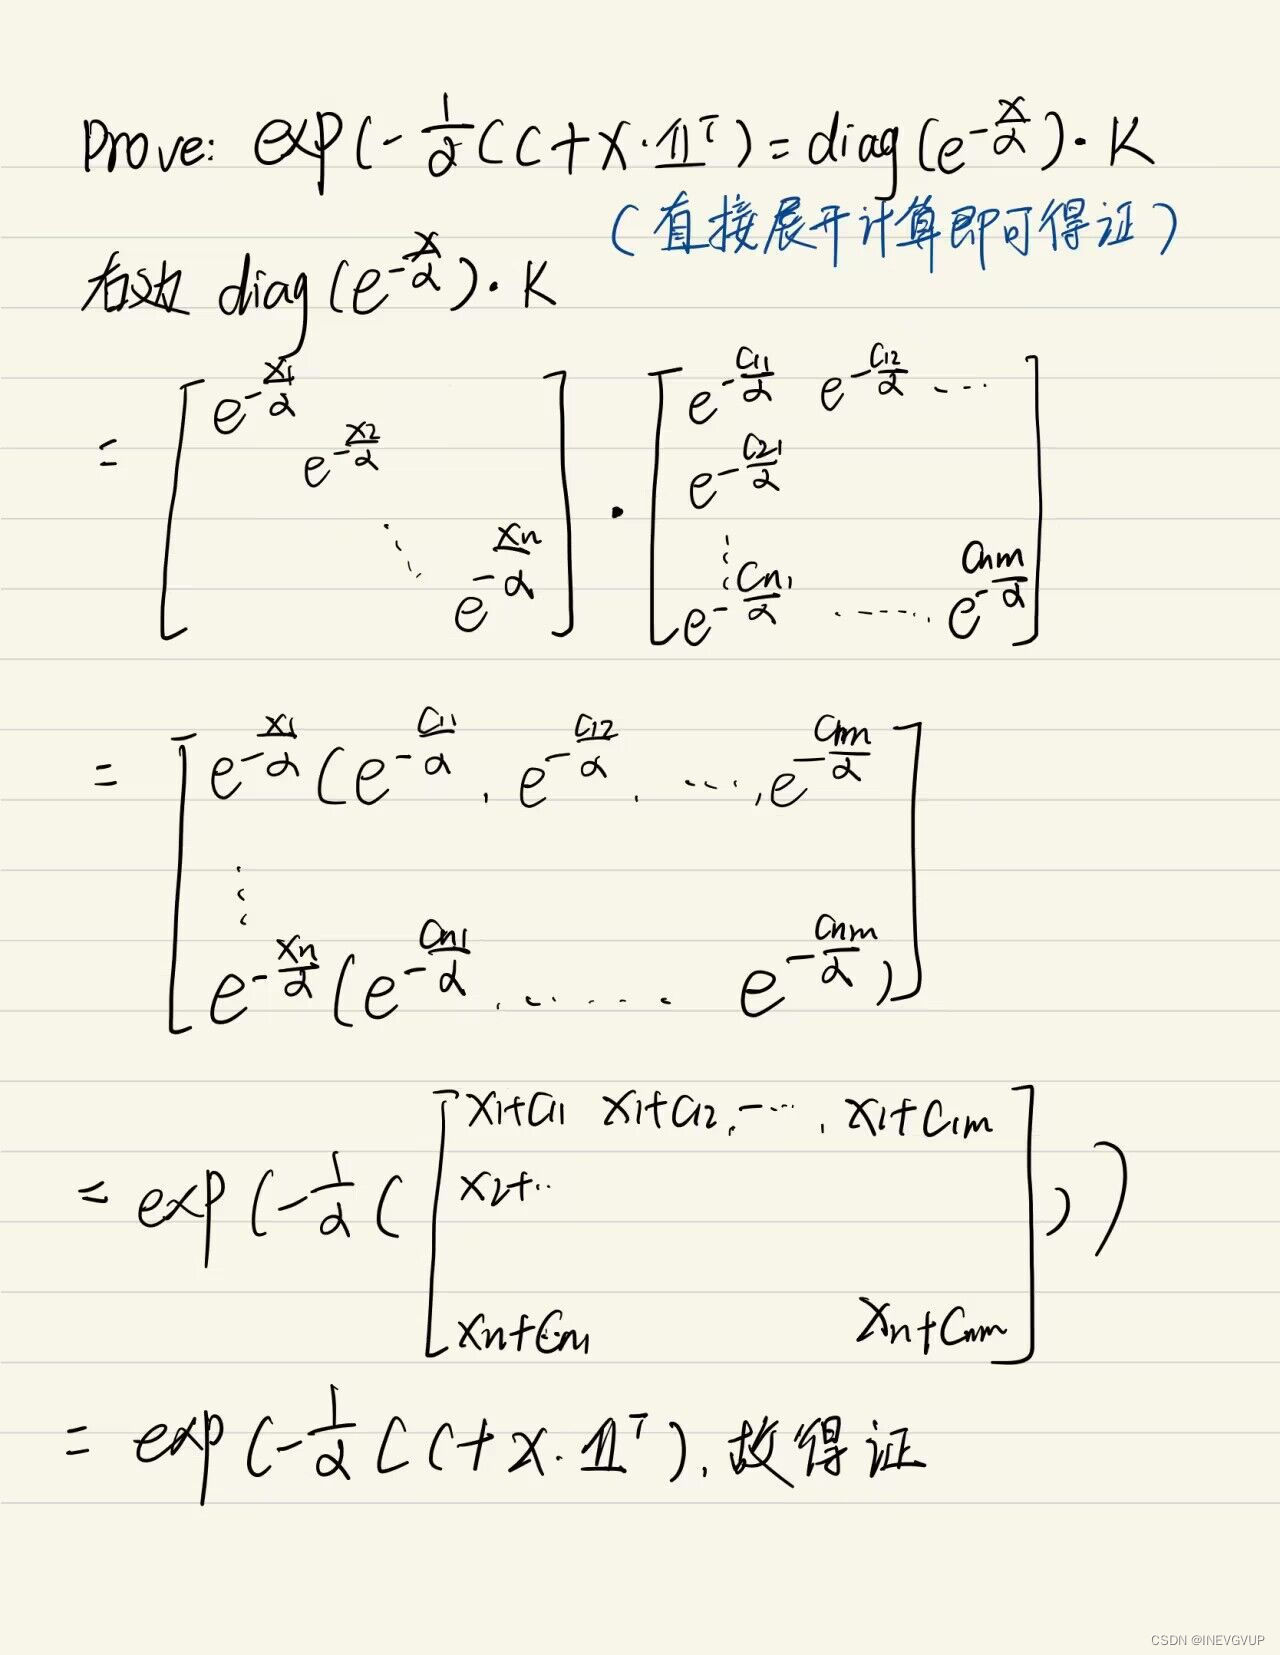 Prove: exp(-1/α(C+X·𝟙ᵀ) = diag(e^{-X/α})·K
(直接展开计算即可得证)
右边 diag(e^{-X/α})·K
= [e^{-X₁/α} e^{-X₂/α} ⋱ e^{-Xn/α}] · [e^{-C₁₁/α} e^{-C₁₂/α} ... e^{-C₂₁/α} ⋮ e^{-Cn₁/α} ...... e^{-Cnm/α}]
= [e^{-X₁/α}(e^{-C₁₁/α}, e^{-C₁₂/α}, ..., e^{-C₁m/α} ⋮ e^{-Xn/α}(e^{-Cn₁/α} ...... e^{-Cnm/α})]
= exp(-1/α([X₁+C₁₁ X₁+C₁₂, ..., X₁+C₁m X₂+.. Xn+Cn₁ Xn+Cnm]))
= exp(-1/α(C+X·𝟙ᵀ), 故得证
CSDN @INEVGVUP